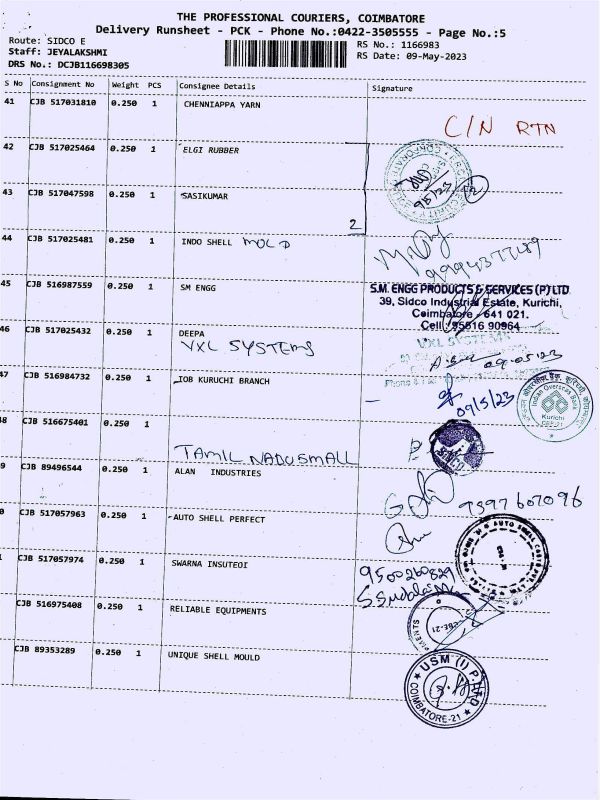 THE PROFESSIONAL COURIERS, COIMBATORE
Delivery Runsheet - PCK - Phone No.:0422-3505555 - Page No.:5
Route: SIDCO E
Staff: JEYALAKSHMI
DRS No.: DCJB116698305
RS No.: 1166983
RS Date: 09-May-2023
S No Consignment No Weight PCS Consignee Details Signature
41 CJB 517031810 0.250 1 CHENNIAPPA YARN
C/N RTN
42 CJB 517025464 0.250 1 ELGI RUBBER
9/5/23 2
43 CJB 517047598 0.250 1 SASIKUMAR
2
44 CJB 517025481 0.250 1 INDO SHELL MOLD
45 CJB 516987559 0.250 1 SM ENGG
S.M. ENGG PRODUCTS & SERVICES (P) LTD
39, Sidco Industrial Estate, Kurichi,
Coimbatore - 641 021.
Cell : 95516 90964
46 CJB 517025432 0.250 1 DEEPA
VXL SYSTEMS
VXL SYSTEMS
09-05-23
47 CJB 516984732 0.250 1 IOB KURUCHI BRANCH
09/5/23
Indian Overseas Bank
Kurichi
CBE-21
8 CJB 516675401 0.250 1
TAMIL NADUSMALL
9 CJB 89496544 0.250 1 ALAN INDUSTRIES
9597607096
0 CJB 517057963 0.250 1 AUTO SHELL PERFECT
CBE-21
CJB 517057974 0.250 1 SWARNA INSUTEOI
9500260829
CJB 516975408 0.250 1 RELIABLE EQUIPMENTS
CBE-21
CJB 89353289 0.250 1 UNIQUE SHELL MOULD
USM (I) P. LTD
COIMBATORE-21